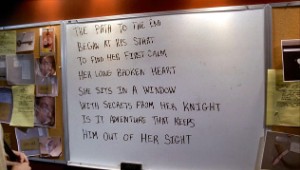 THE PATH TO THE END
BEGAN AT HIS START
TO FIND HER FIRST CALM
HER LONG BROKEN HEART
SHE SITS IN A WINDOW
WITH SECRETS FROM HER KNIGHT
IS IT ADVENTURE THAT KEEPS
HIM OUT OF HER SIGHT